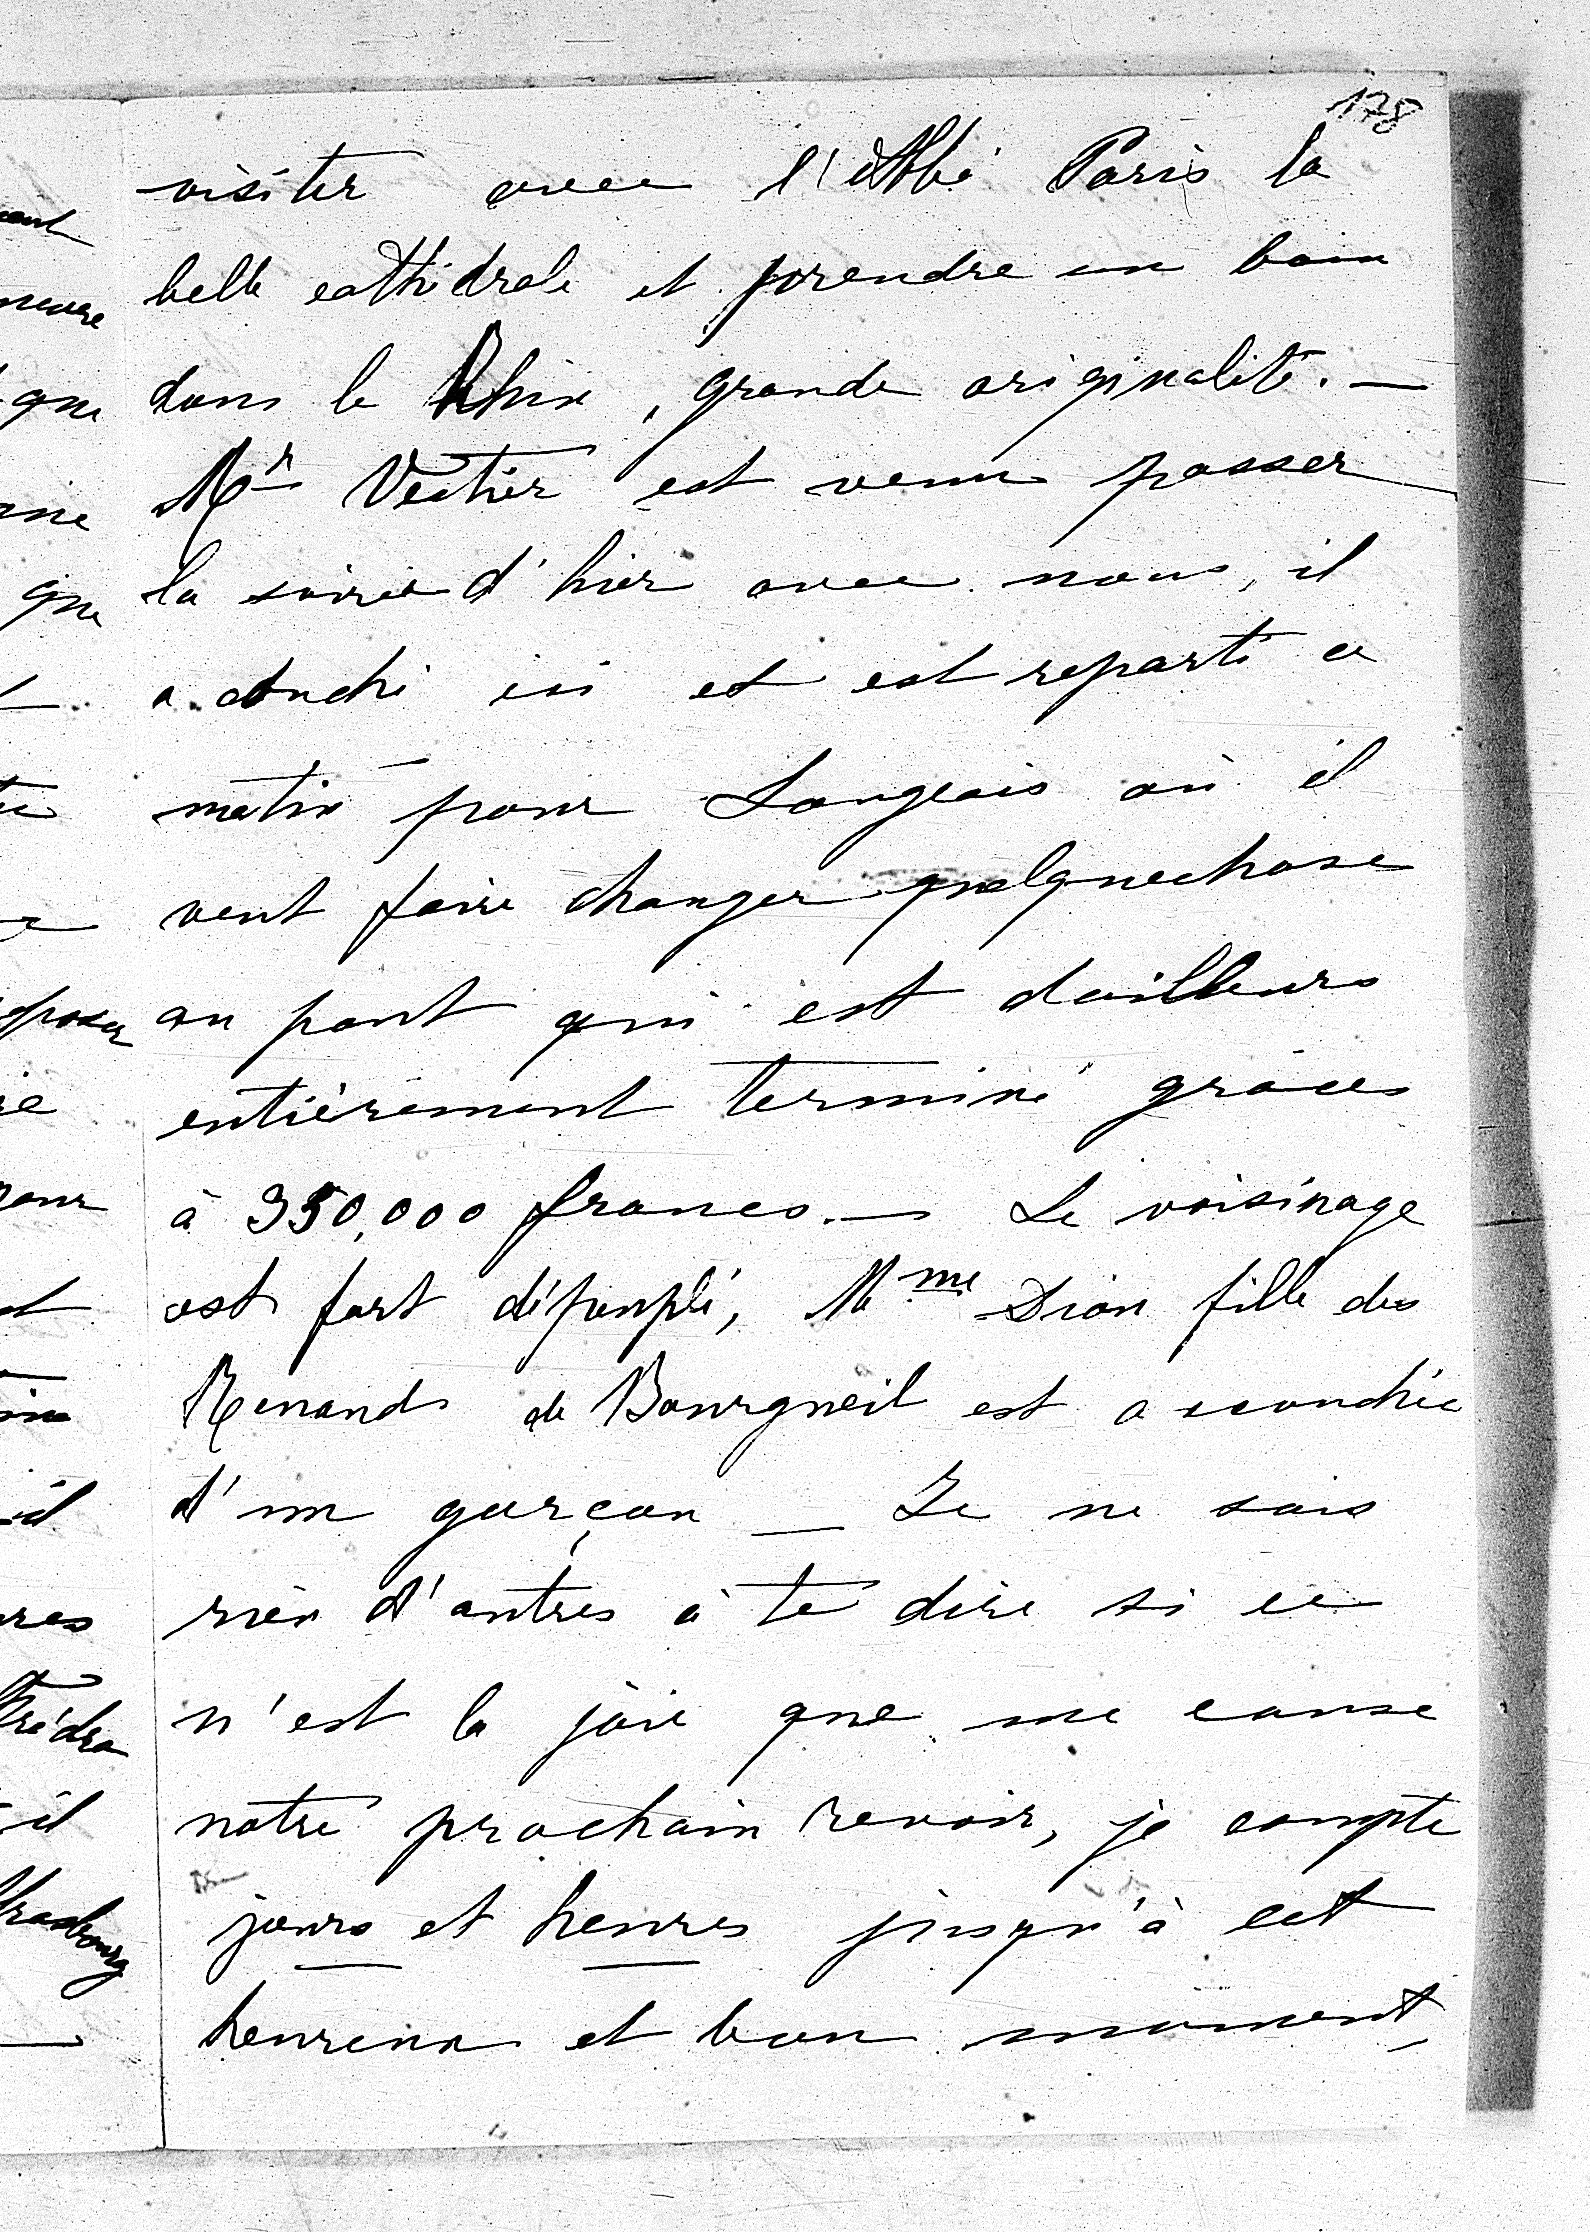 178
visiter avec l'Abbé Paris la
belle cathédrale et prendre un bain
dans le Rhin, grande originalité. —
Mr Vestier est venu passer
la soirée d'hier avec nous, il
a couché ici et est reparti ce
matin pour Langeais où il
veut faire changer quelquechose
au pont qui est dailleurs
entièrement terminé grâces
à 350,000 francs. — Le voisinage
est fort dépeuplé, Mme Dion fille des
Renauds de Bourgueil est accouchée
d'un garçon — Je ne sais
rien d'autres à te dire si ce
n'est la joie que me cause
notre prochain revoir, je compte
jours et heures jusqu'à cet
heureux et bon moment,